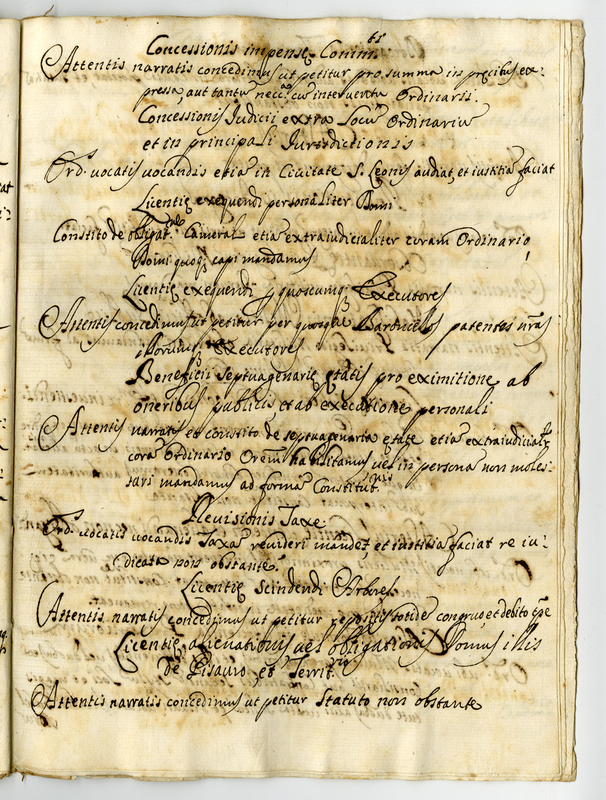 Concessionis impensę Conim.ti
Attentis narratis concedimus ut petitur pro summa in precibus ex-
pressa, aut tantu necc.a cu interventu Ordinarii.
Concessionis Iudicii extra Locu Ordinariu
et in principali Iurisdictionis
Ord. vocatis vocandis etia in Civitate S. Leonis audiat, et iustitia faciat
Licentię exequendi personaliter Domi
Constito de obligat.ne Camerali etia extraiudicialiter coram Ordinario
Domi quoq; capi mandamus
Licentię exequendi p quoscumq; Executores
Attentis concedimus ut petitur per quoscu Baricellos patentes nras
illorumq; Executores
Beneficii septuagenarię ętatis pro eximitione ab
oneribus publicis et ab executione personali
Attentis narratis et constito de septuagenaria ętate etia extraiudicialr
cora Ordinario Orem habilitamus vel in persona non moles-
tari mandamus ad forma Constitut.nis
Revisionis Taxę
Ord. vocatis vocandis Taxa revideri mandet, et iustitia faciat re iu-
dicata non obstante.
Licentię Scindendi Arbores
Attentis narratis concedimus ut petitur repositis totide congruo, et debito tpe
Licentię alienationis vel obligationis Domus illis
de Pisauro, et Territ.rio
Attentis narratis concedimus ut petitur Statuto non obstante